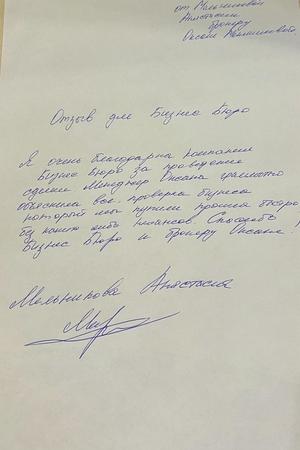 от Мельниковой
Анастасии
брокеру
Оксане
Отзыв для Бизнес Бюро
Я очень благодарна компании
Бизнес Бюро за проведение
сделки Менеджер Оксана грамотно
объяснила все. проверка бизнеса
который мы купили прошла быстро
без каких либо нюансов Спасибо
Бизнес Бюро и брокеру Оксане!
Мельникова Анастасия